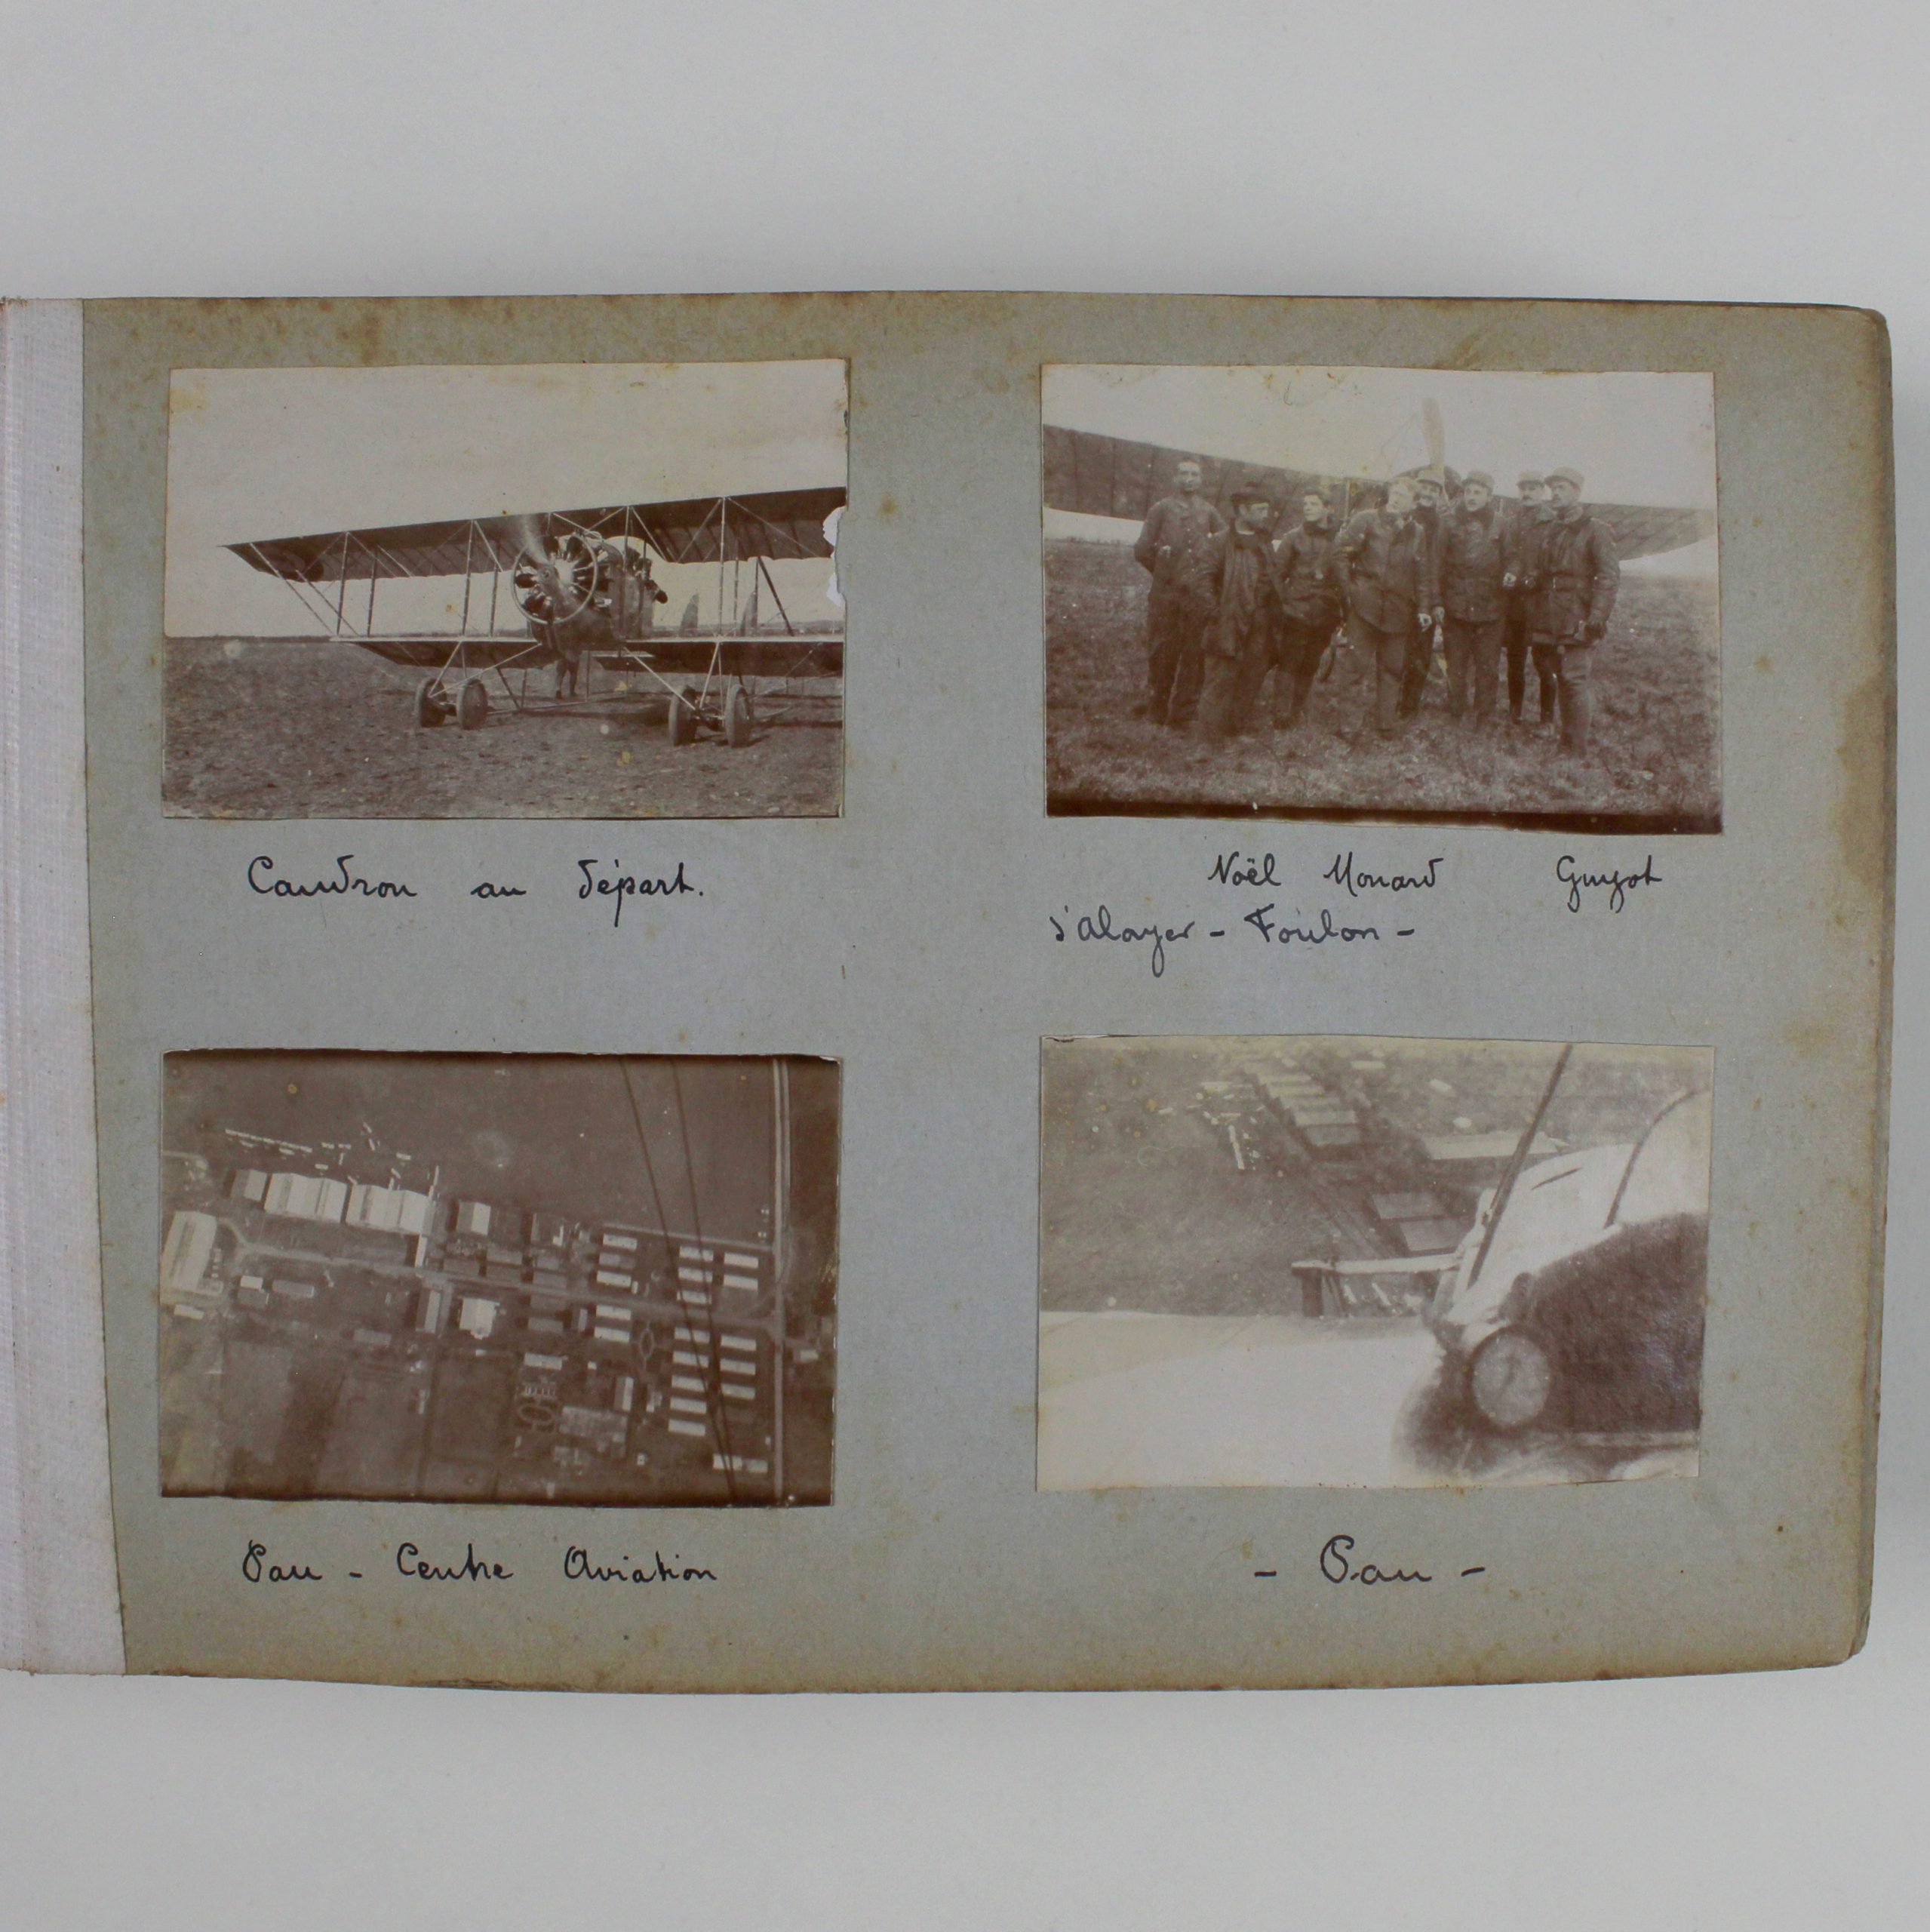 Caudron au départ.
Noël Monard Guyot
d'Alayer - Foulon -
Pau - Centre Aviation
- Pau -